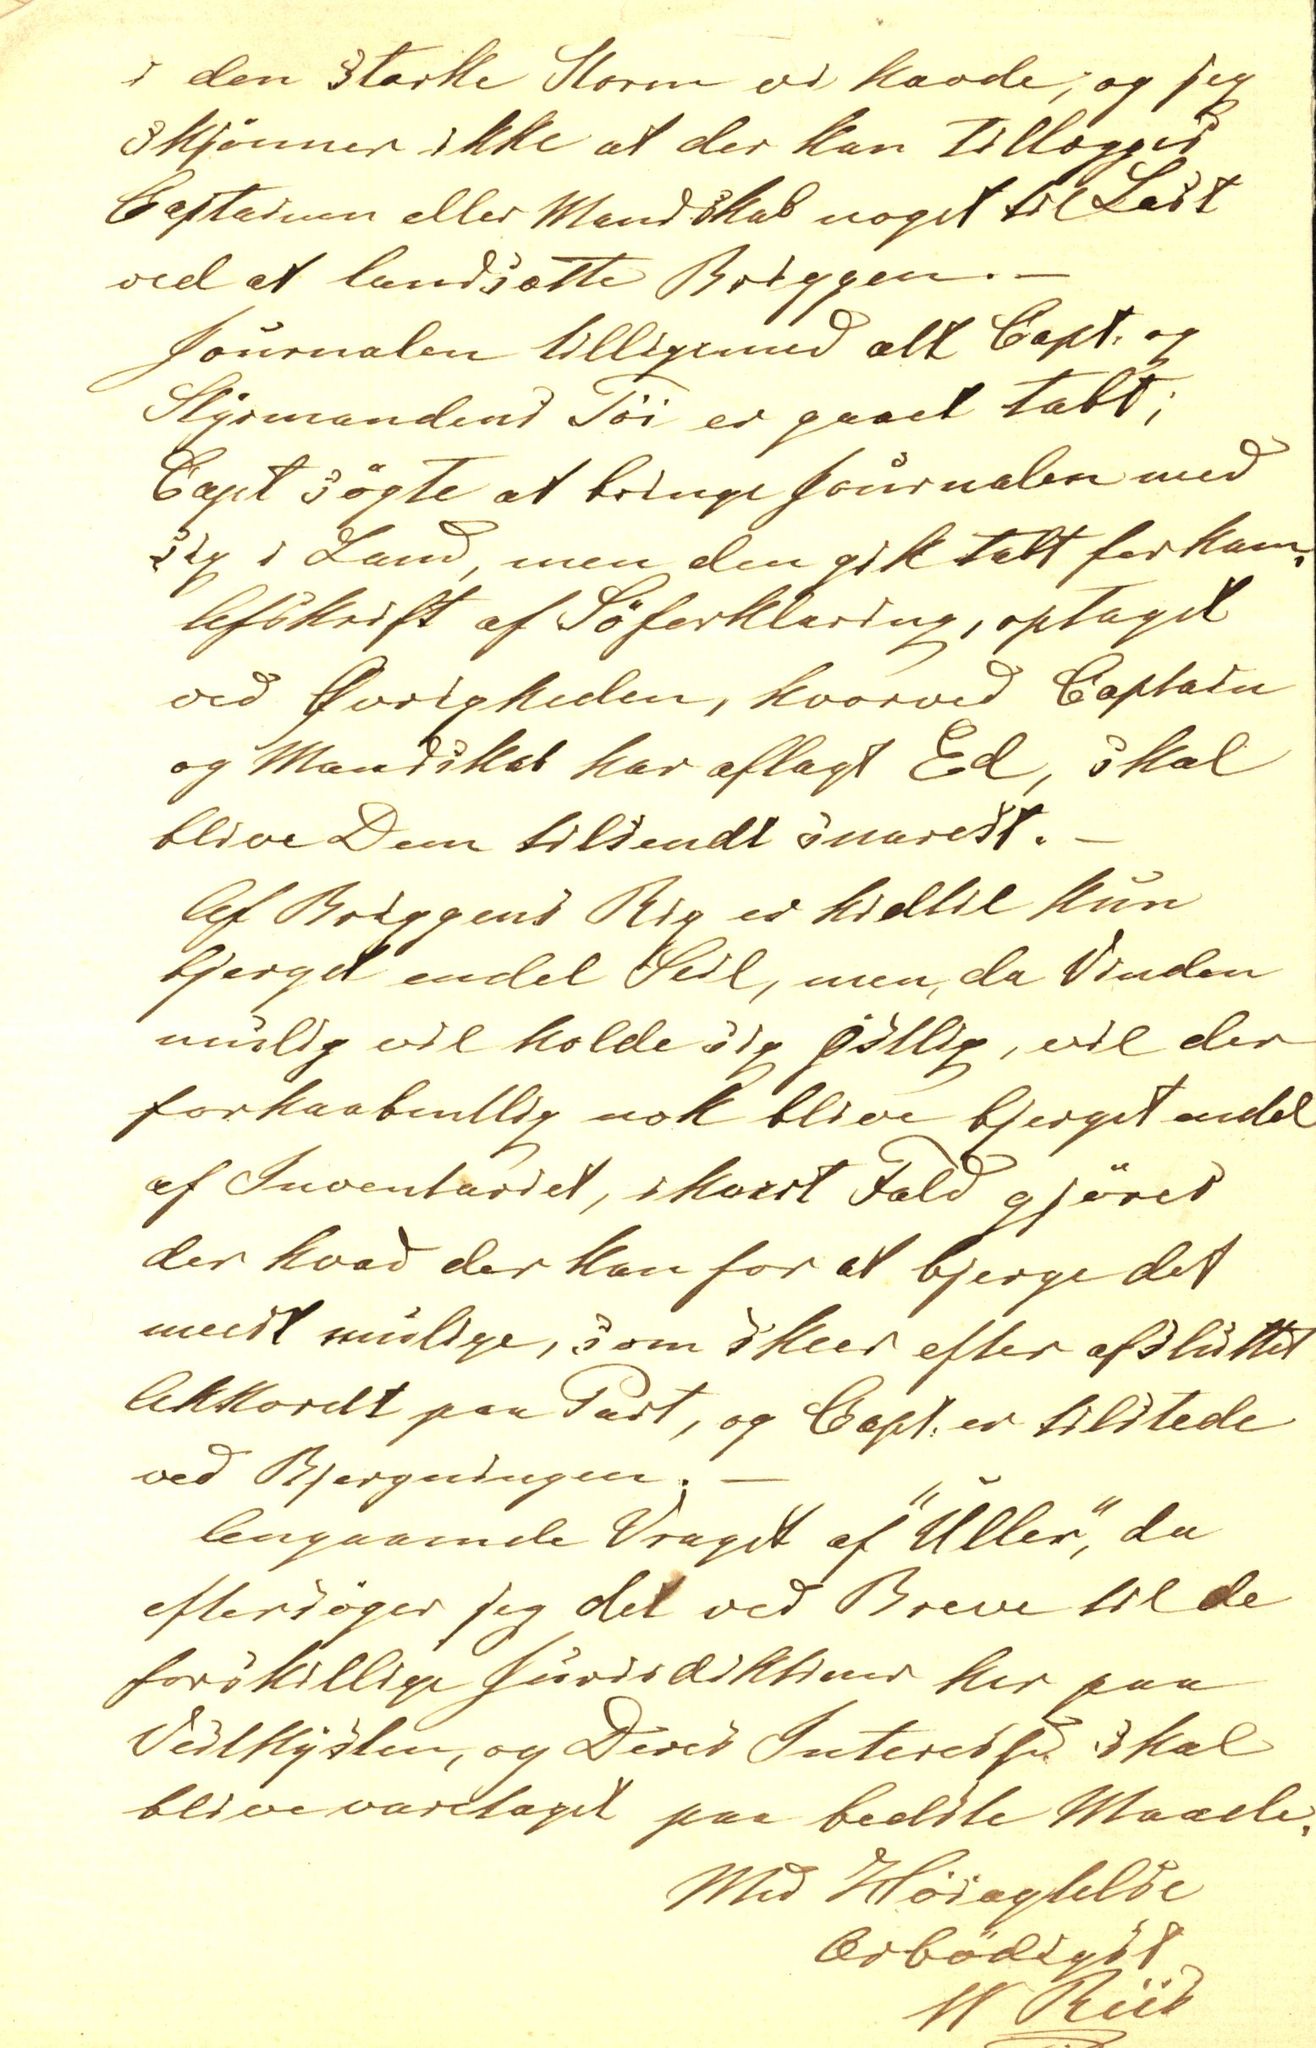 i den stærke Storm vi havde, og jeg
skjönner ikke at der kan tillægges
Captainen eller Mandskab noget til Last
ved at landsætte Briggen. —
Journalen tilligemed alt Capt. og
Styrmandens Töi er gaaet tabt;
Capt sögte at bringe Journalen med
sig i Land, men den gik tabt for ham.
Afskrift af Söforklaring, optaget
ved Øvrigheden, hvorved Captain
og Mandskab har aflagt Ed, skal
blive Dem tilsendt snarest. —
Af Briggens Rig er hidtil kun
bjerget endel Seil, men, da Vinden
muslig vil holde sig östlig, vil der
forhaabentlig nok blive bjerget endel
af Inventariet, ihvert Fald gjöres
der hvad der kan for at bjerge det
meest muslige, som skeer efter afsluttet
Akkordt paa Part, og Capt. er tilstede
ved Bjergningen. —
Angaaende Vraget af "Uller", da
eftersöger jeg det ved Breve til de
forskillige Jurisdiktioner her paa
Vestkysten, og Deres Interesse skal
blive varetaget paa bedste Maade.
Med Höiagtelse
Ærbödigst